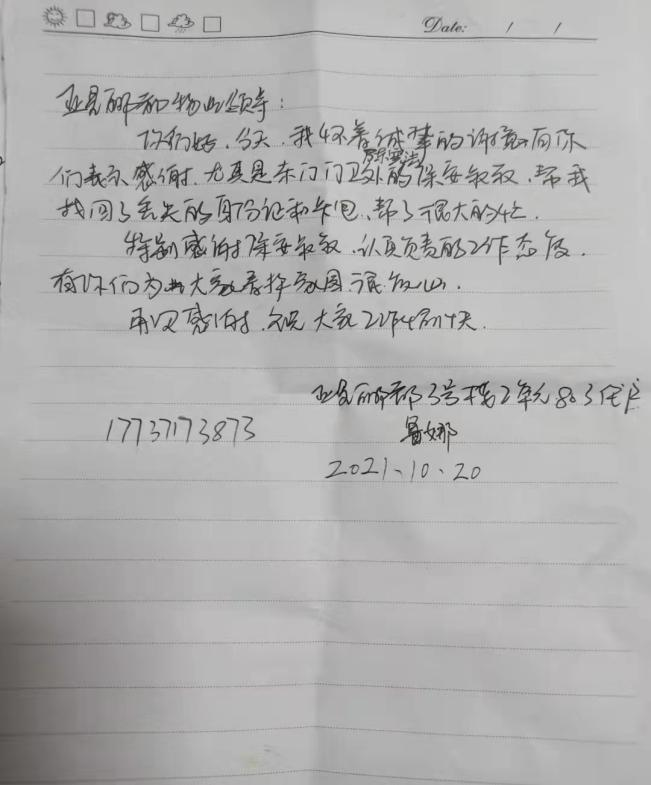 Date: / /
亚昆丽都和物业领导:
你们好,今天,我怀着诚挚的谢意向你
们表示感谢,尤其是东门门卫处的保安叔叔,帮我
找回了丢失的身份证和卡包,帮了很大的忙.
特别感谢保安叔叔,认真负责的工作态度,
有你们为大家看护家园很放心.
再次感谢,祝大家工作愉快.
丽都3号楼2单元803住户
17737173873
娜
2021、10、20